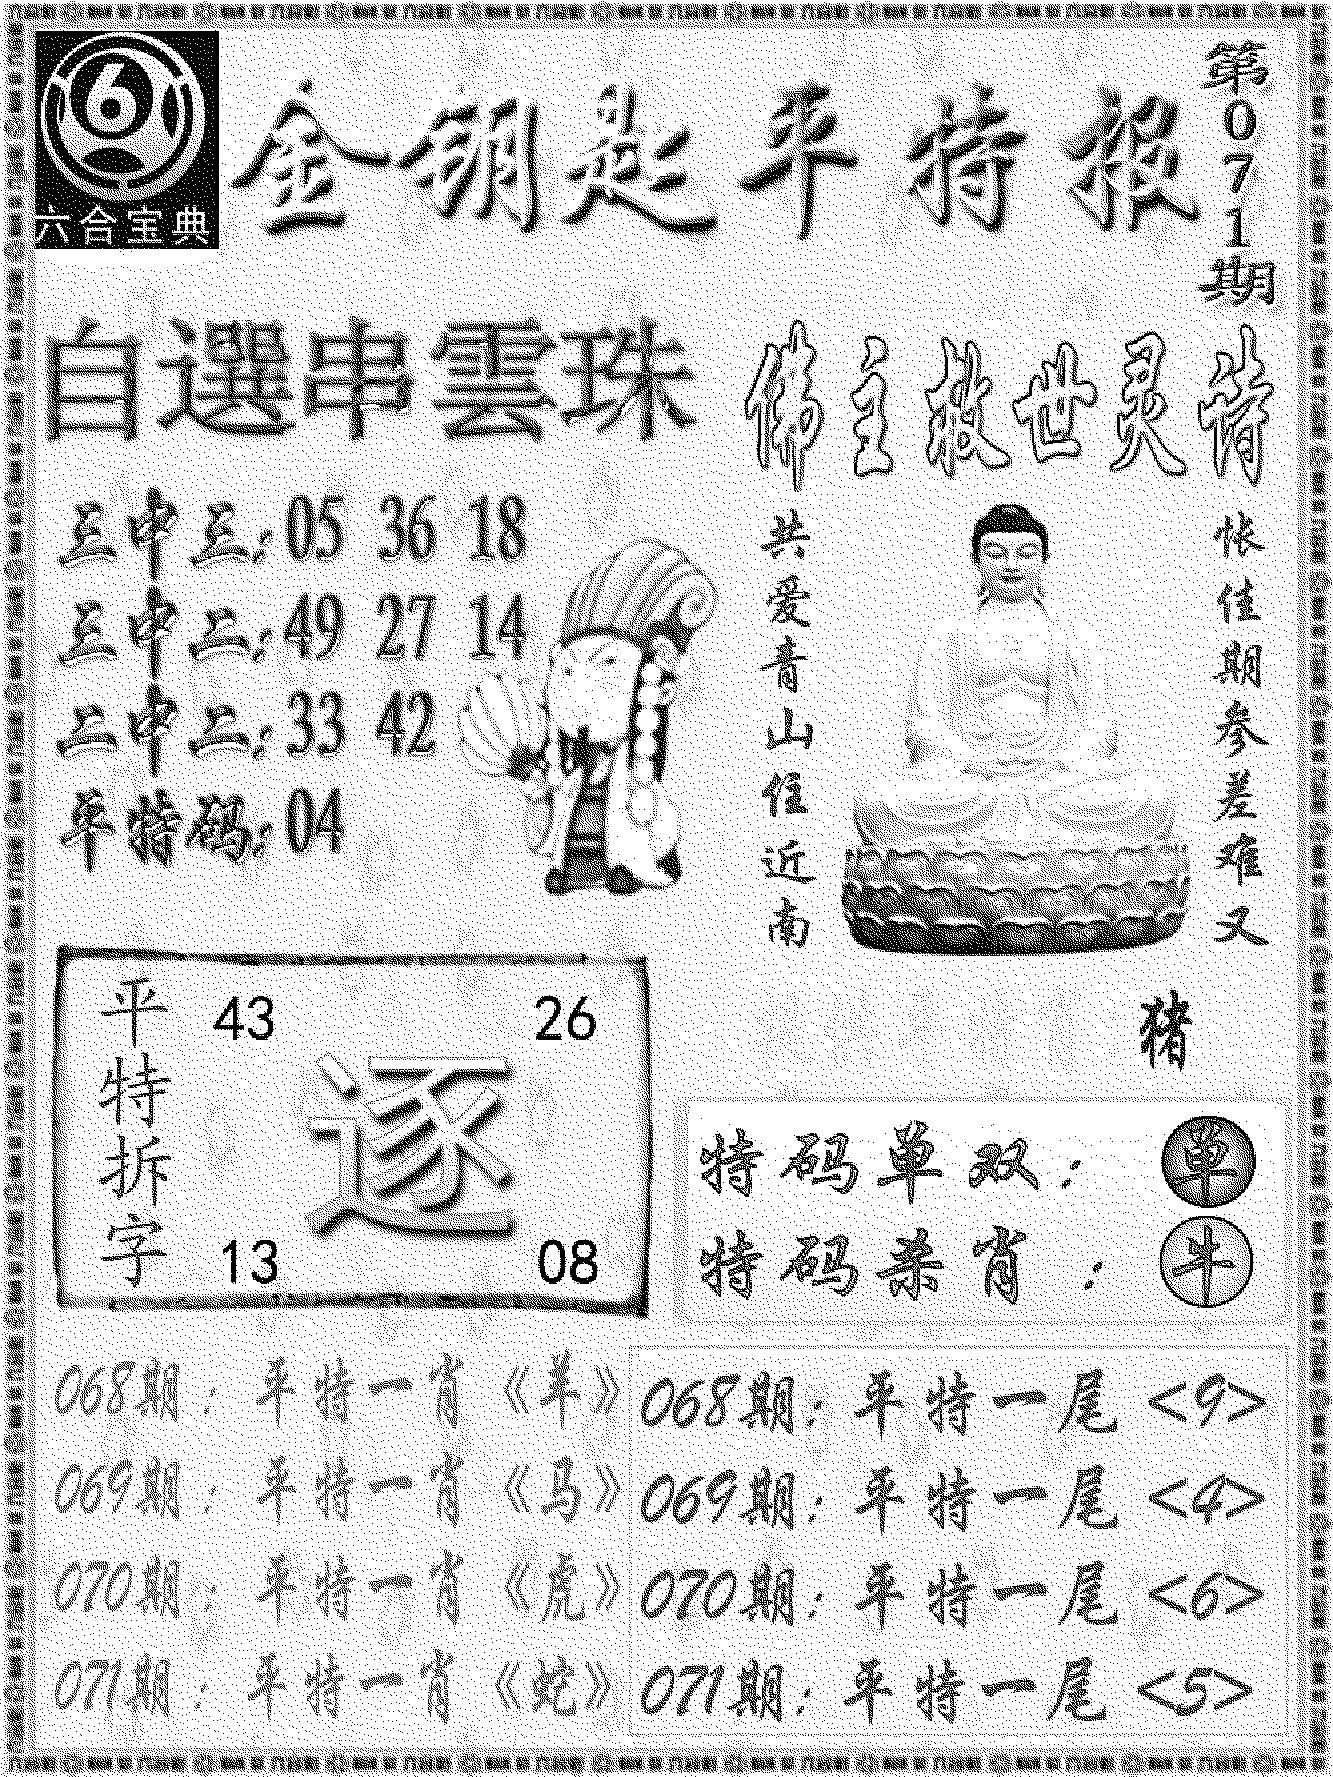 六合宝典
金钥匙平特报
第071期
自選串雲珠
三中三:05 36 18
三中二:49 27 14
二中二:33 42
平特码:04
佛主救世灵诗
怅佳期参差难又
共爱青山住近南
猪
平特拆字
43 26
逐
13 08
特码单双:单
特码杀肖:牛
068期:平特一肖《羊》
069期:平特一肖《马》
070期:平特一肖《虎》
071期:平特一肖《蛇》
068期:平特一尾<9>
069期:平特一尾<4>
070期:平特一尾<6>
071期:平特一尾<5>